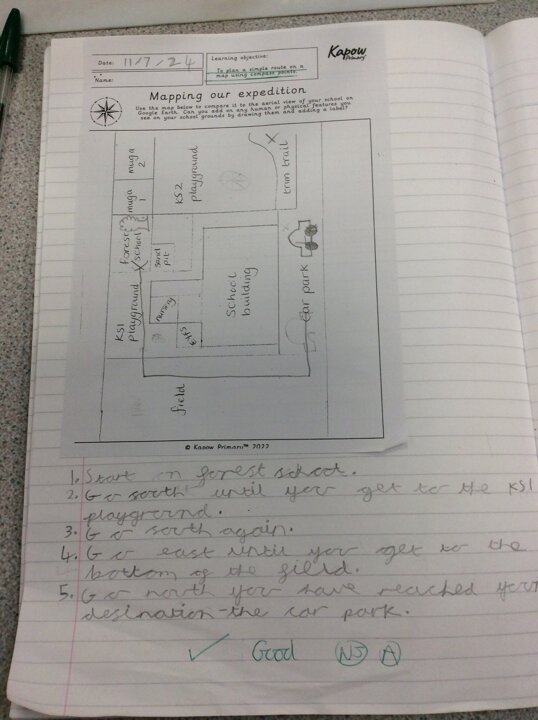 Date: 11/7/24
Name:
Learning objective:
To plan a simple route on a
map using compass points.
Kapow
Primary
Mapping our expedition
Use the map below to compare it to the aerial view of your school on
Google Earth. Can you add on any human or physical features you
see on your school grounds by drawing them and adding a label?
muga
2
muga
1
KS2
playground
trim trail
forest
school
sand
pit
KS1
playground
nursery
EYFS
School
building
car park
field
© Kapow Primary™ 2022
1. Start in forest school.
2. Go south until you get to the KS1
playground.
3. Go south again.
4. Go east until you get to the
bottom of the field.
5. Go north you have reached your
desination-the car park.
✓ Good NS A